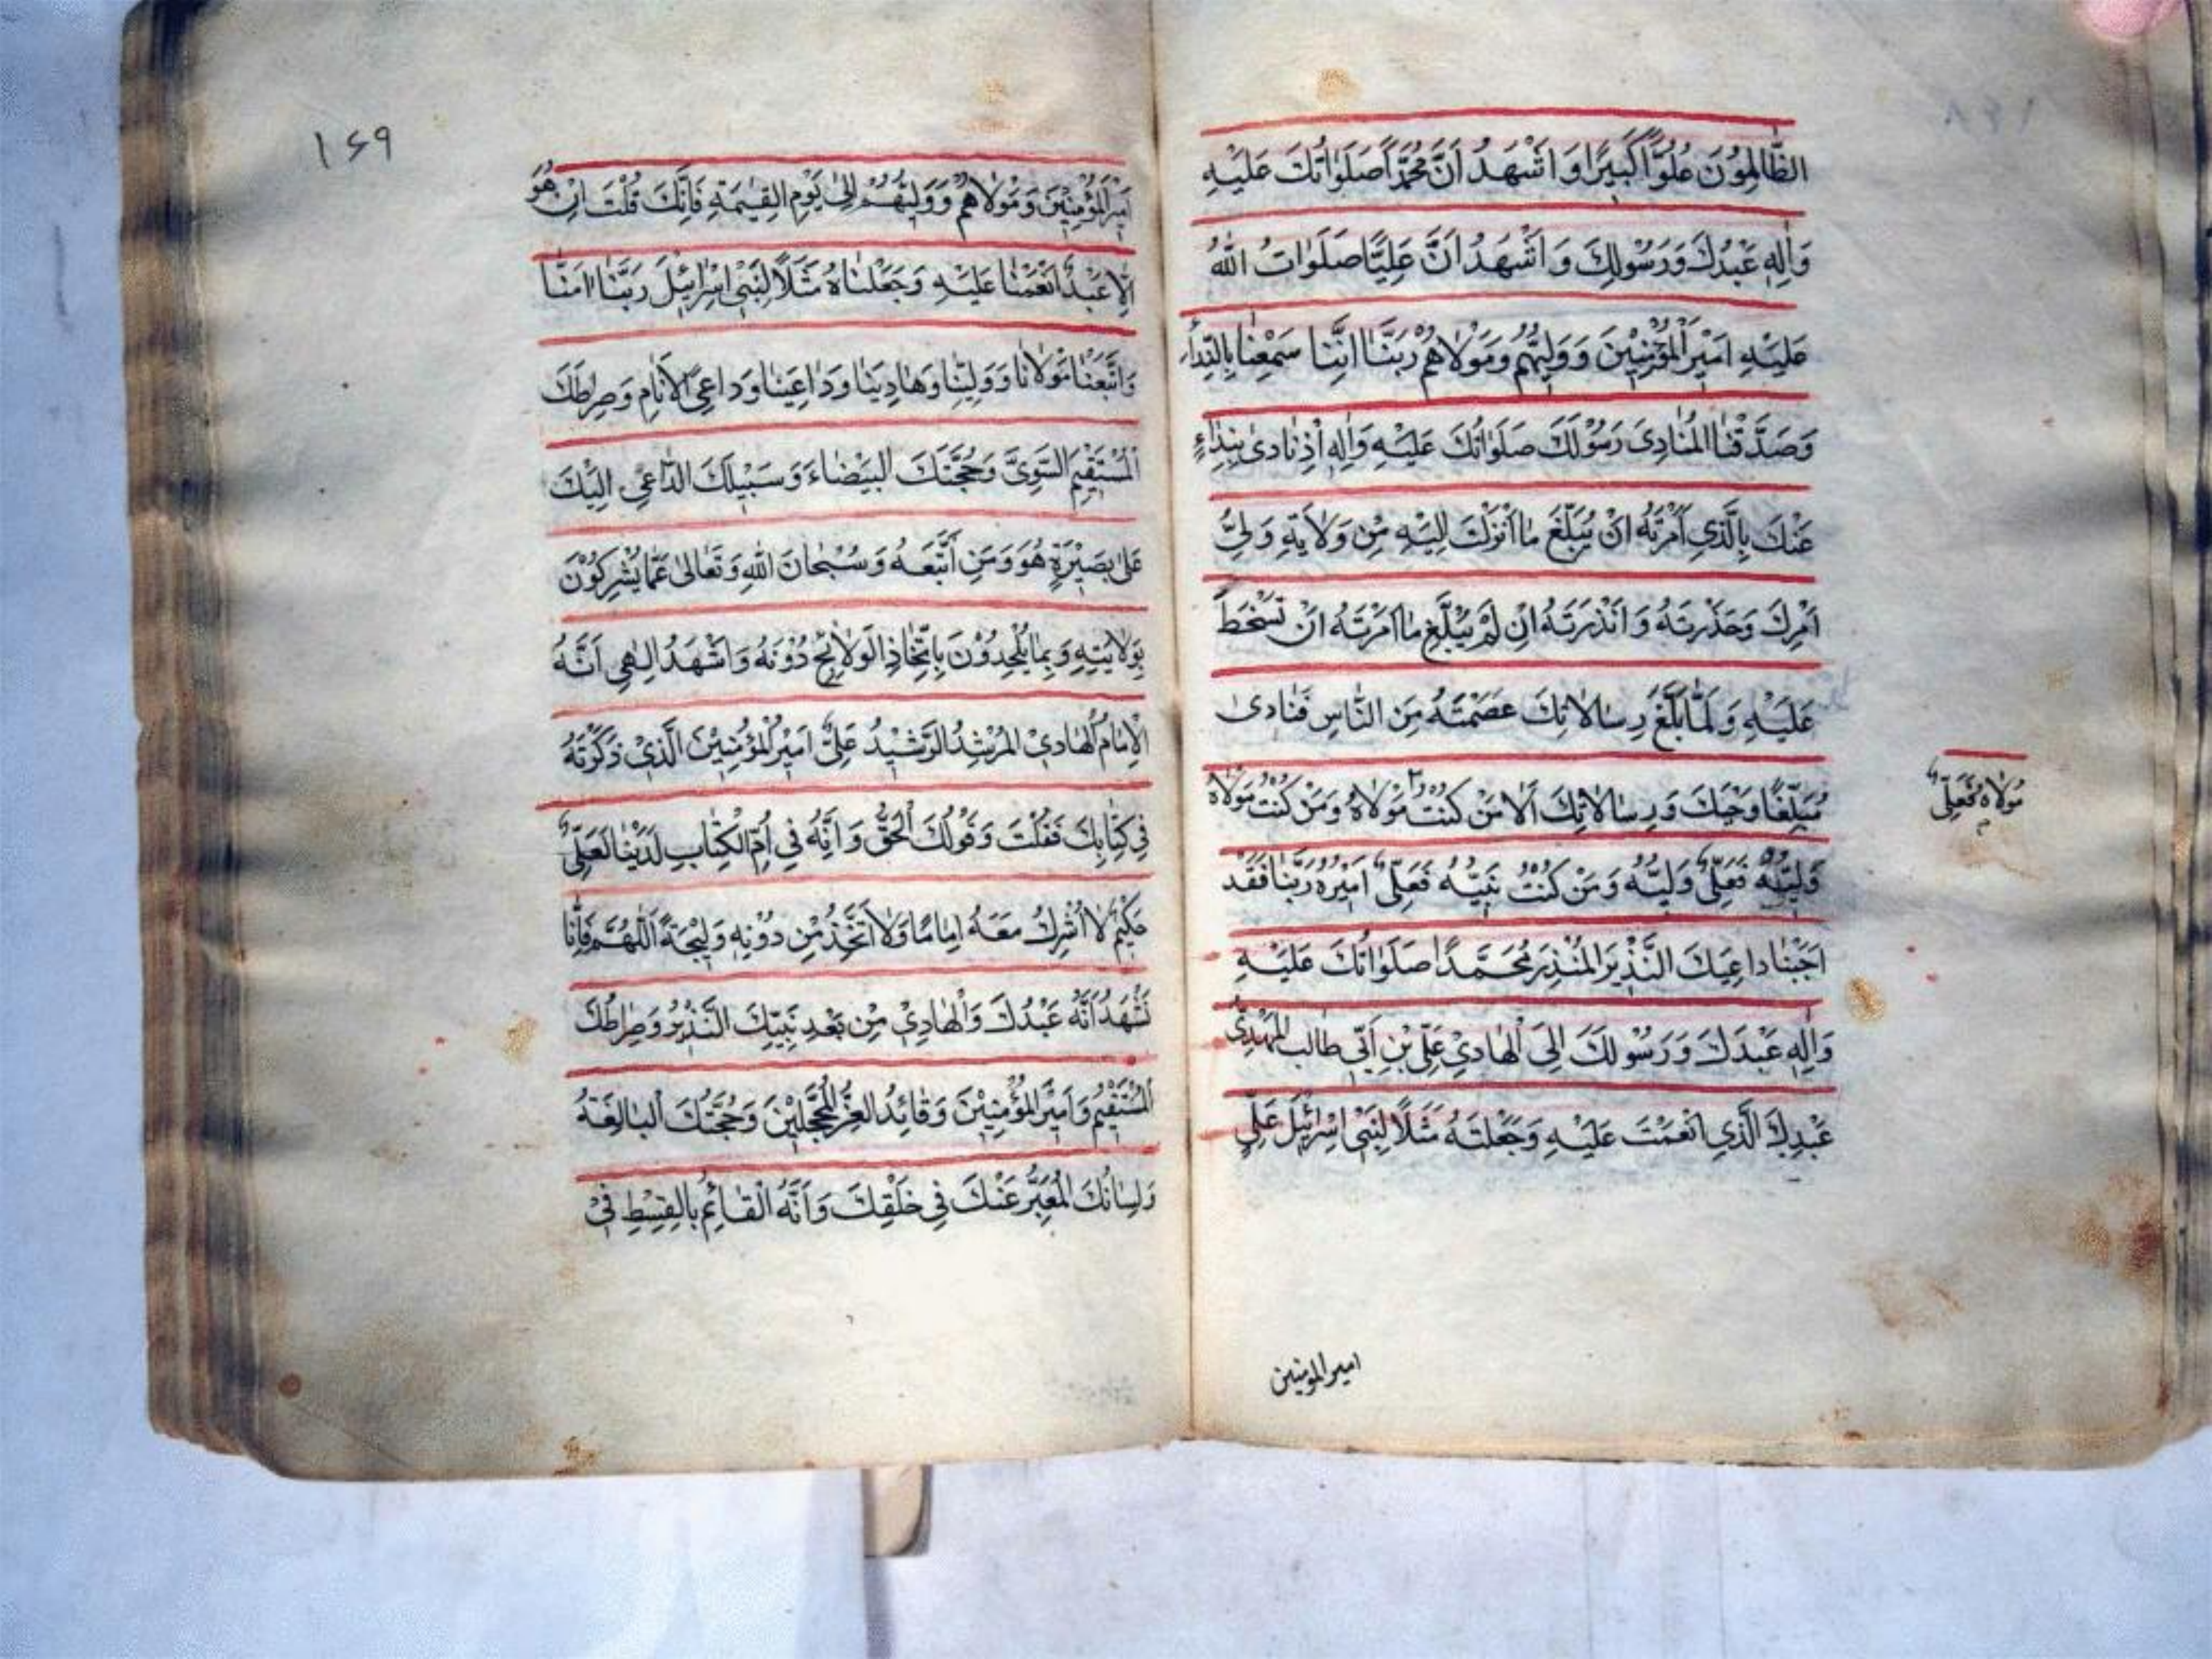 الظَّالِمُونَ عُلُوًّا كَبِيرًا وَاَشْهَدُ اَنَّ مُحَمَّدًا صَلَوَاتُكَ عَلَيْهِ
وَاٰلِهِ عَبْدُكَ وَرَسُولُكَ وَاَشْهَدُ اَنَّ عَلِيًّا صَلَوَاتُ اللّٰهِ
عَلَيْهِ اَمِيْرُ الْمُؤْمِنِيْنَ وَوَلِيُّهُمْ وَمَوْلَاهُمْ رَبَّنَا اِنَّنَا سَمِعْنَا بِالنِّدَاءِ
وَصَدَّقْنَا الْمُنَادِيَ رَسُوْلَكَ صَلَوَاتُكَ عَلَيْهِ وَاٰلِهِ اِذْ نَادىٰ بِنِدَاءٍ
عَنْكَ بِالَّذِي اَمَرْتَهُ اَنْ يُبَلِّغَ مَا اَنْزَلْتَ اِلَيْهِ مِنْ وَلَايَةِ وَلِيِّ
اَمْرِكَ وَحَذَّرْتَهُ وَاَنْذَرْتَهُ اِنْ لَمْ يُبَلِّغْ مَا اَمَرْتَهُ اَنْ تَسْخَطَ
عَلَيْهِ وَلَمَّا بَلَّغَ رِسَالَاتِكَ عَصَمْتَهُ مِنَ النَّاسِ فَنَادىٰ
مُبَلِّغًا وَحْيَكَ وَرِسَالَاتِكَ اَلَا مَنْ كُنْتُ مَوْلَاهُ وَمَنْ كُنْتُ مَوْلَاهُ
مَوْلَاهُ فَعَلِيٌّ
وَلِيَّهُ فَعَلِيٌّ وَلِيُّهُ وَمَنْ كُنْتُ نَبِيَّهُ فَعَلِيٌّ اَمِيْرُهُ رَبَّنَا فَقَدْ
اَجَبْنَا دَاعِيَكَ النَّذِيْرَ الْمُنْذِرَ مُحَمَّدًا صَلَوَاتُكَ عَلَيْهِ
وَاٰلِهِ عَبْدَكَ وَرَسُولَكَ اِلَى الْهَادِيْ عَلِيِّ بْنِ اَبِي طَالِب الْمَهْدِيِّ
عَبْدِكَ الَّذِي اَنْعَمْتَ عَلَيْهِ وَجَعَلْتَهُ مَثَلًا لِبَنِيْ اِسْرَائِيْلَ عَلِيٍّ
امیرالمومنین
۱۶۹
اَمِيْرِ الْمُؤْمِنِيْنَ وَمَوْلَاهُمْ وَوَلِيِّهُمْ اِلىٰ يَوْمِ الْقِيٰمَةِ فَاِنَّكَ قُلْتَ اِنْ هُوَ
اِلَّا عَبْدٌ اَنْعَمْنَا عَلَيْهِ وَجَعَلْنَاهُ مَثَلًا لِبَنِيْ اِسْرَائِيْلَ رَبَّنَا اٰمَنَّا
وَاتَّبَعْنَا مَوْلَانَا وَوَلِيَّنَا وَهَادِيَنَا وَدَاعِيَنَا وَدَاعِيَ الْاَنَامِ وَصِرَاطَكَ
الْمُسْتَقِيْمَ السَّوِيَّ وَحُجَّتَكَ الْبَيْضَاءَ وَسَبِيْلَكَ الدَّاعِيَ اِلَيْكَ
عَلىٰ بَصِيْرَةٍ هُوَ وَمَنِ اتَّبَعَهُ وَسُبْحَانَ اللّٰهِ وَتَعَالىٰ عَمَّا يُشْرِكُوْنَ
بِوَلَايَتِهِ وَبِمَا يُلْحِدُوْنَ بِاتِّخَاذِ الْوَلَائِجِ دُوْنَهُ وَاَشْهَدُ اِلٰهِي اَنَّهُ
الْاِمَامُ الْهَادِيْ الْمُرْشِدُ الرَّشِيْدُ عَلِيٌّ اَمِيْرُ الْمُؤْمِنِيْنَ الَّذِيْ ذَكَرْتَهُ
فِي كِتَابِكَ فَقُلْتَ وَقَوْلُكَ الْحَقُّ وَاِنَّهُ فِي اُمِّ الْكِتَابِ لَدَيْنَا لَعَلِيٌّ
حَكِيْمٌ لَا اُشْرِكُ مَعَهُ اِمَامًا وَلَا اَتَّخِذُ مِنْ دُوْنِهِ وَلِيْجَةً اَللّٰهُمَّ فَاِنَّا
نَشْهَدُ اَنَّهُ عَبْدُكَ وَالْهَادِيْ مِنْ بَعْدِ نَبِيِّكَ النَّذِيْرُ وَصِرَاطُكَ
الْمُسْتَقِيْمُ وَاَمِيْرُ الْمُؤْمِنِيْنَ وَقَائِدُ الْغُرِّ الْمُحَجَّلِيْنَ وَحُجَّتُكَ الْبَالِغَةُ
وَلِسَانُكَ الْمُعَبِّرُ عَنْكَ فِي خَلْقِكَ وَاَنَّهُ الْقَائِمُ بِالْقِسْطِ فِيْ